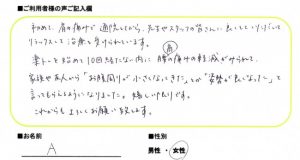 ■ご利用者様の声ご記入欄
初めて、肩の痛みで通院してから、先生やスタッフの皆さんに良くして
リラックスして治療を受けられています。
楽トレを始めて10回もたない内に肩腰の痛みの軽減がみられて、
家族や友人から「お腹周りが小さくなってきた」とか「姿勢が良くなった」と
言ってもらえるようになりました。嬉しい限りです。
これからもよろしくお願い致します。
■お名前
A
■性別
男性・女性